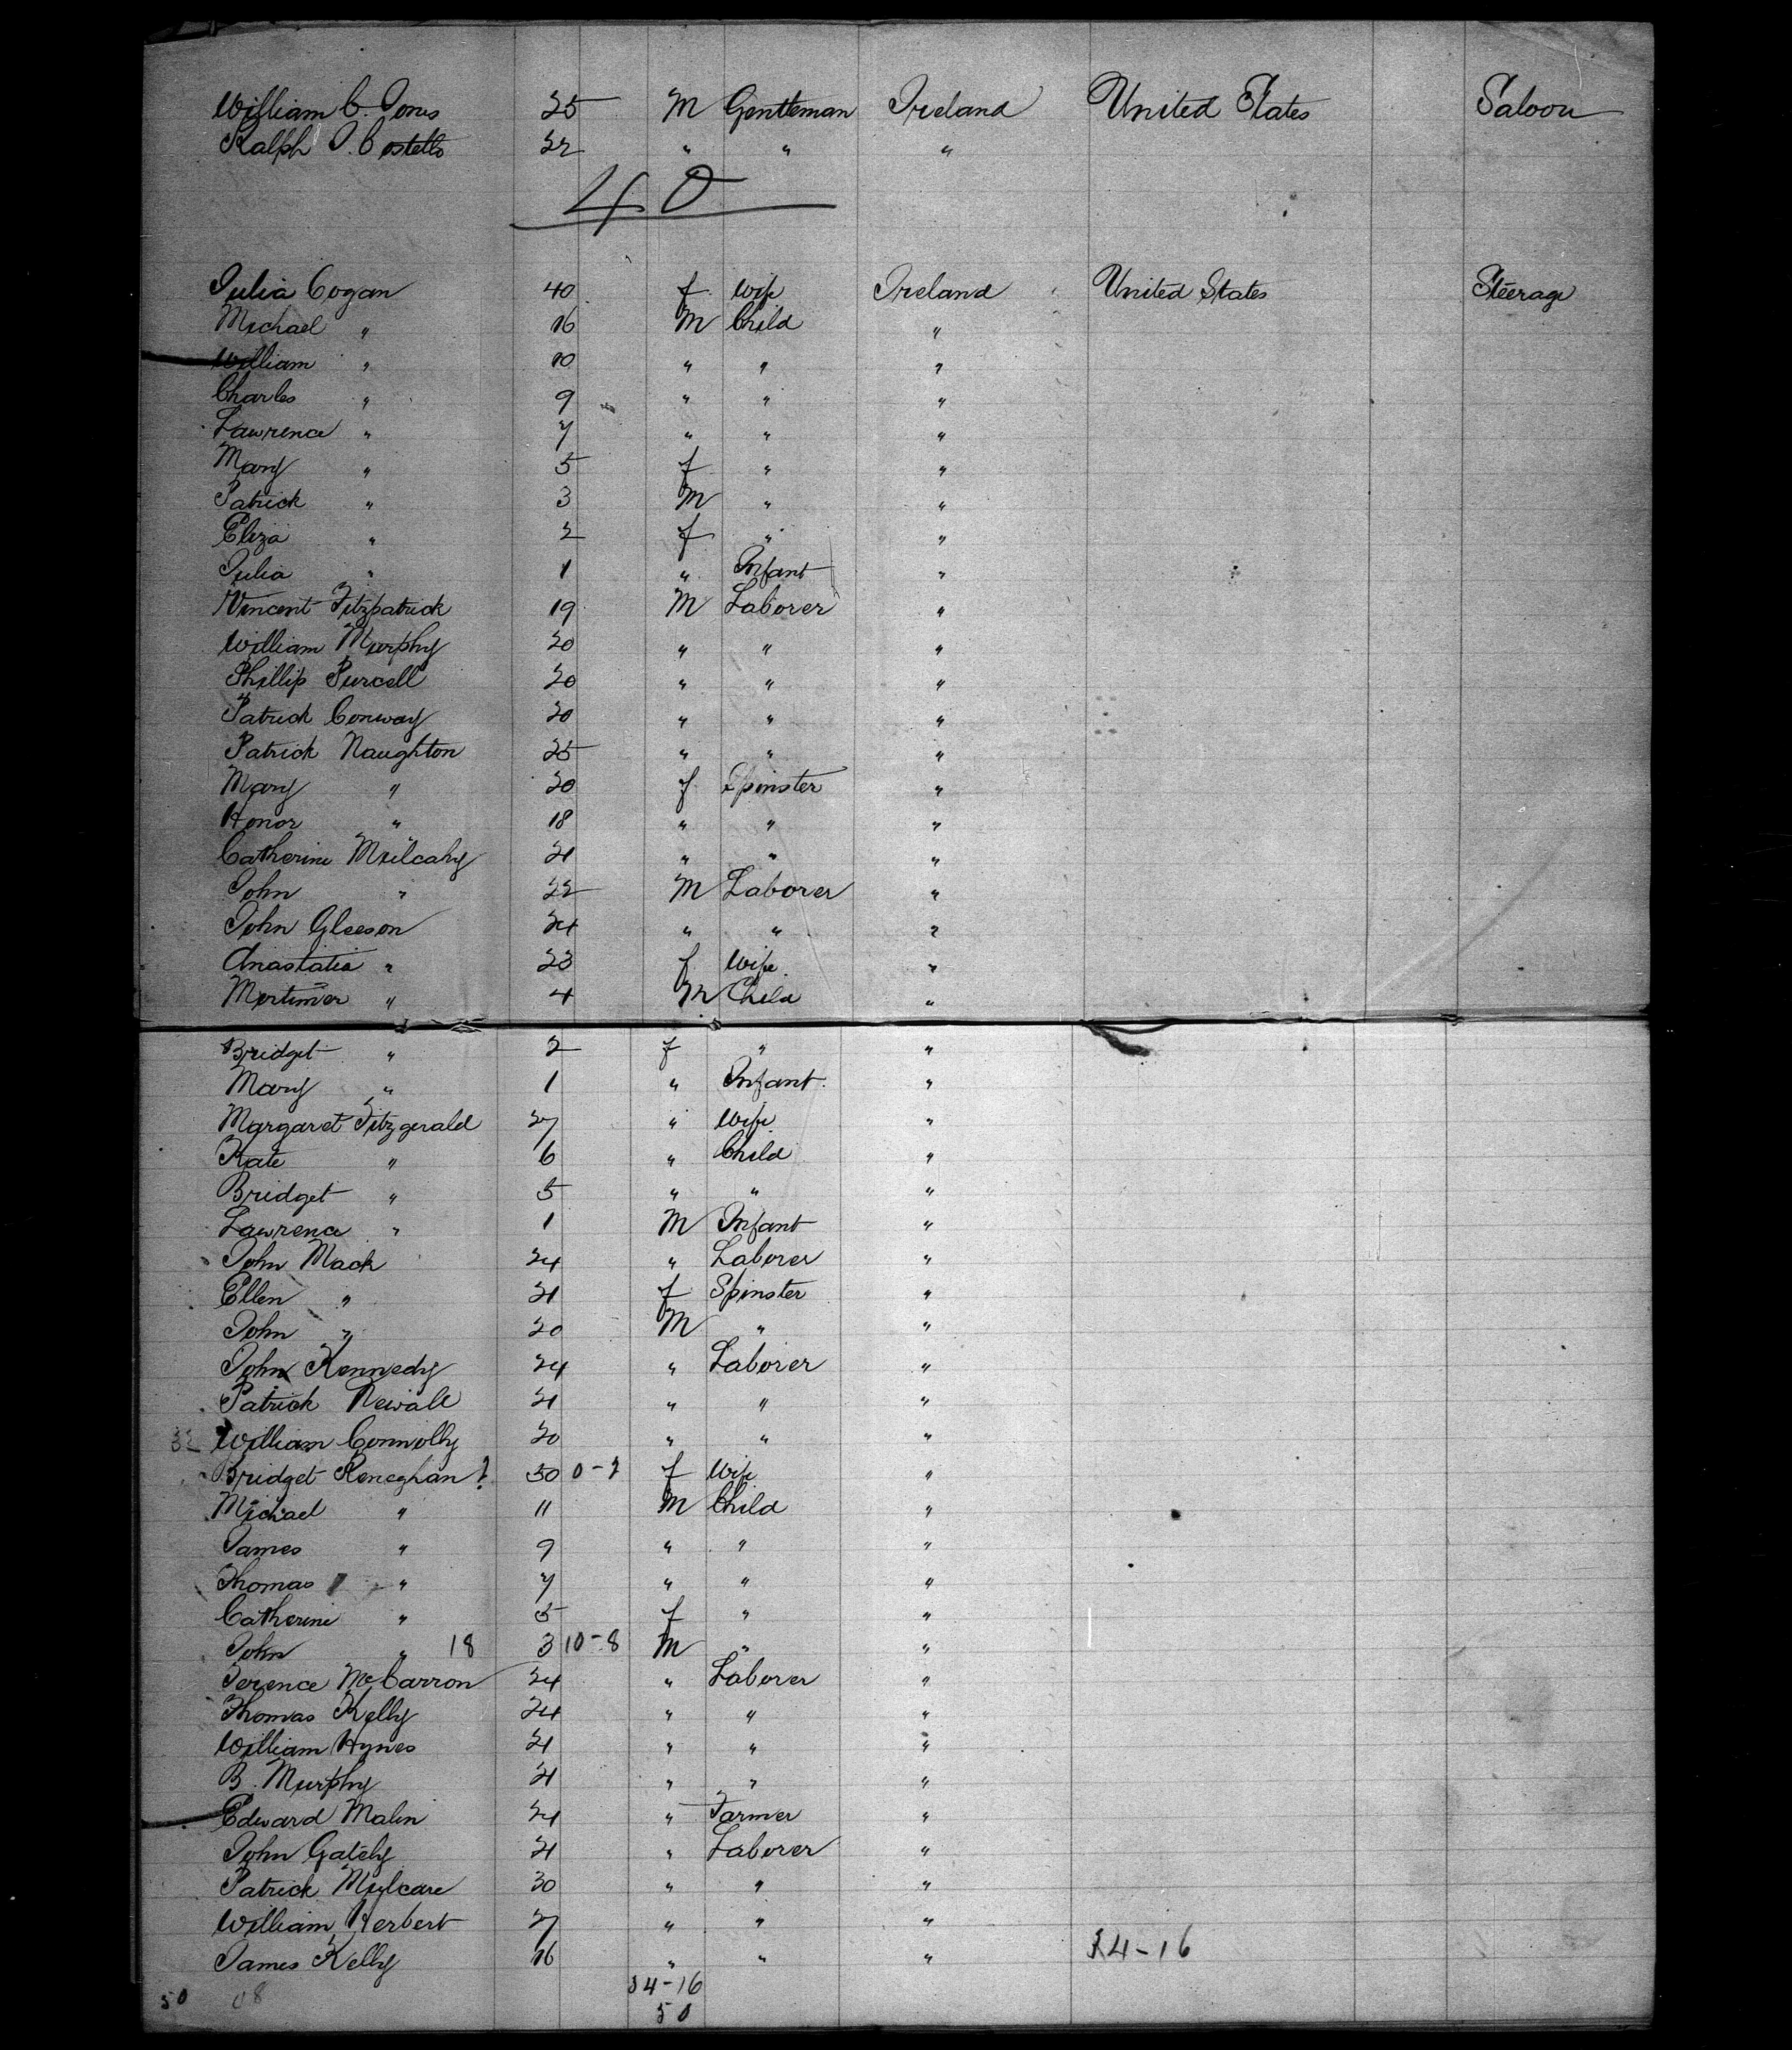 William C. Jones 25 M Gentleman Ireland United States Saloon
Ralph J. Costello 22 " " "
40
Julia Cogan 40 f Wife Ireland United States Steerage
Michael " 16 M Child "
William " 10 " " "
Charles " 9 " " "
Lawrence " 7 " " "
Mary " 5 f " "
Patrick " 3 M " "
Eliza " 2 f " "
Julia " 1 " Infant "
Vincent Fitzpatrick 19 M Laborer "
William Murphy 20 " " "
Phillip Purcell 20 " " "
Patrick Conway 20 " " "
Patrick Naughton 25 " " "
Mary " 20 f Spinster "
Honor " 18 " " "
Catherine Mulcahy 21 " " "
John " 22 M Laborer "
John Gleeson 24 " " "
Anastatia " 23 f Wife "
Mortimer " 4 M Child "
Bridget " 2 f " "
Mary " 1 " Infant "
Margaret Fitzgerald 27 " Wife "
Kate " 6 " Child "
Bridget " 5 " " "
Lawrence " 1 M Infant "
John Mack 24 " Laborer "
Ellen " 21 f Spinster "
John " 20 M " "
John Kennedy 24 " Laborer "
Patrick Newall 21 " " "
32 William Connolly 20 " " "
Bridget Reneghan ? 30 0-2 f Wife "
Michael " 11 M Child "
James " 9 " " "
Thomas " 7 " " "
Catherine " 5 f " "
John " 18 3 10-8 M " "
Terence McCarron 24 " Laborer "
Thomas Kelly 24 " " "
William Hynes 21 " " "
B. Murphy 21 " " "
Edward Malin 24 " Farmer "
John Gatehy 21 " Laborer "
Patrick Mulcare 30 " " "
William Herbert 27 " " "
James Kelly 16 " " " 34-16
34-16
50 08 50